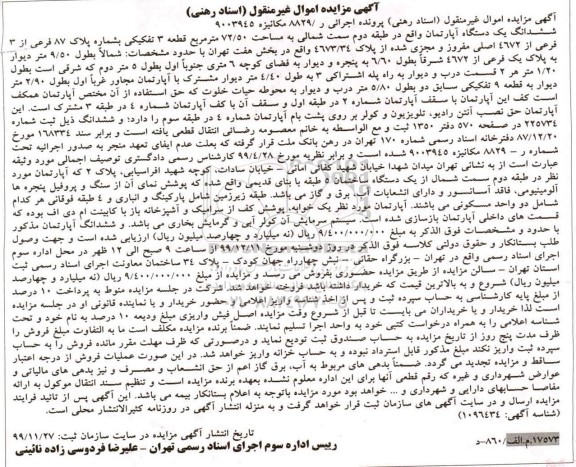 آگهی مزایده اموال غیرمنقول (اسناد رهنی)
آگهی مزایده اموال غیرمنقول (اسناد رهنی) پرونده اجرائی ر /۸۸۲۹ مکانیزه ۹۰۰۳۹۴۵
ششدانگ یک دستگاه آپارتمان واقع در طبقه دوم سمت شمالی به مساحت ۷۲/۵۰ مترمربع قطعه ۳ تفکیکی بشماره پلاک ۸۷ فرعی از ۳
فرعی از ۴۶۷۲ اصلی مفروز و مجزی شده از پلاک ۴۶۷۳/۳۴ واقع در بخش هفت تهران با حدود مشخصات: شمالاً بطول ۹/۵۰ متر دیوار
به پلاک یک فرعی از ۴۶۷۲ شرقاً بطول ۶/۶۰ به پنجره و دیوار به فضای کوچه ۶ متری جنوباً اول بطول ۵ متر دوم که شرقی است بطول
۱/۲۰ متر هر ۲ قسمت درب و دیوار به راه پله اشتراکی ۳ به طول ۴/۴۰ متر دیوار مشترک با آپارتمان مجاور غرباً اول بطول ۲/۹۰ متر
دیوار به قطعه ۹ تفکیکی سابق دو بطول ۵/۸۰ متر درب و دیوار به محوطه حیات خلوت که حق استفاده از آن مختص آپارتمان همکف
است کف این آپارتمان با سقف آپارتمان شماره ۲ در طبقه اول و سقف آن با کف آپارتمان شماره ۴ در طبقه ۳ مشترک است. این
آپارتمان حق نصب آنتن رادیو، تلویزیون و کولر بر روی پشت بام آپارتمان شماره ۴ در طبقه سوم را دارد؛ و ششدانگ ذیل ثبت شماره
۲۲۵۷۳۴ در صفحه ۵۷۰ دفتر ۱۳۵۰ ثبت و مع الواسطه به خانم معصومه رضائی انتقال قطعی یافته است و برابر سند ۱۶۸۳۳۴ مورخ
۸۷/۱۲/۲۰ دفترخانه اسناد رسمی شماره ۱۷۰ تهران در رهن بانک ملت قرار گرفته که بعلت عدم ایفای تعهد منجر به صدور اجرائیه تحت
شماره ر – ۸۸۲۹ مکانیزه ۹۰۰۳۹۴۵ شده است. و برابر نظریه مورخ ۹۹/۴/۲۸ کارشناس رسمی دادگستری توصیف اجمالی مورد وثیقه
عبارت است از به نشانی تهران میدان شهدا خیابان شهید کفائی امانی – خیابان سادات، کوچه شهید افراسیابی، پلاک ۲ که آپارتمان مورد
نظر در طبقه دوم سمت شمال از یک دستگاه ساختمان ۴ طبقه با بنای قدیمی واقع شده، که پوشش نمای آن از سنگ و پروفیل پنجره ها
آلومینیومی، فاقد آسانسور و دارای انشعابات آب، برق و گاز می باشد. طبقه زیرزمین شامل پارکینگ و انباری و ۴ طبقه فوقانی هر کدام
شامل دو واحد مسکونی می باشند. آپارتمان مورد نظر یک خوابه، پوشش کف از سرامیک و آشپزخانه باز با کابینت ام دی اف بوده که
قسمت های داخلی آپارتمان بازسازی شده است. سیستم سرمایش آن کولر آبی و گرمایش بخاری می باشد. و ششدانگ آپارتمان مذکور
با حدود و مشخصات فوق الذکر به مبلغ ۹/۴۰۰/۰۰۰/۰۰۰ ریال (نه میلیارد و چهارصد میلیون ریال) ارزیابی شده است و جهت وصول
طلب بستانکار و حقوق دولتی کلاسه فوق الذکر در روز دوشنبه مورخ ۹۹/۱۲/۱۸ از ساعت ۹ صبح الی ۱۲ ظهر در محل اداره سوم
اجرای اسناد رسمی واقع در تهران – بزرگراه حقانی – نبش چهارراه جهان کودک – پلاک ۳۴ ساختمان معاونت اجرای اسناد رسمی ثبت
استان تهران – سالن مزایده از طریق مزایده حضوری بفروش می رسد و مزایده از مبلغ ۹/۴۰۰/۰۰۰/۰۰۰ ریال (نه میلیارد و چهارصد
میلیون ریال) شروع و به بالاترین قیمت که خریدار داشته باشد فروخته خواهد شد. شرکت در جلسه مزایده منوط به پرداخت ۱۰ درصد
از مبلغ پایه کارشناسی به حساب سپرده ثبت و پس از اخذ شناسه واریز اعلامی و حضور خریدار و یا نماینده قانونی او در جلسه مزایده
است لذا خریدار و یا خریداران می بایست تا قبل از شروع وقت مزایده اصل فیش واریزی مبلغ ودیعه ۱۰ درصد به نام خود و تحت
شناسه اعلامی را به همراه درخواست کتبی خود به واحد اجرا تسلیم نمایند. ضمناً برنده مزایده مکلف است ما به التفاوت مبلغ فروش را
ظرف مدت پنج روز از تاریخ مزایده به حساب صندوق ثبت تودیع نماید و درصورتی که ظرف مهلت مقرر مانده فروش را به حساب
سپرده ثبت واریز نکند مبلغ مذکور قابل استرداد نبوده و به حساب خزانه واریز خواهد شد. در این صورت عملیات فروش از درجه اعتبار
ساقط و مزایده تجدید می گردد. ضمناً بدهی های مربوط به آب، برق گاز اعم از حق انشعاب و مصرف و نیز بدهی های مالیاتی و
عوارض شهرداری و غیره که رقم قطعی آنها برای این اداره معلوم نشده بعهده برنده مزایده است و تنظیم سند انتقال موکول به ارائه
مفاصا حسابهای دارایی و شهرداری و ... خواهد بود مورد مزایده باتوجه به اعلام بستانکار بیمه می باشد. این آگهی پس از تائید فرایند
مزایده ارسال و در سایت آگهی های سازمان ثبت قرار خواهد گرفت و به منزله انتشار آگهی در روزنامه کثیرالانتشار محلی است.
(شناسه آگهی: ۱۰۹۶۴۳۴)
تاریخ انتشار آگهی مزایده در سایت سازمان ثبت: ۹۹/۱۱/۲۷
۱۷۵۷۳.م.الف/۸۶۰-د
رییس اداره سوم اجرای اسناد رسمی تهران – علیرضا فردوسی زاده نائینی